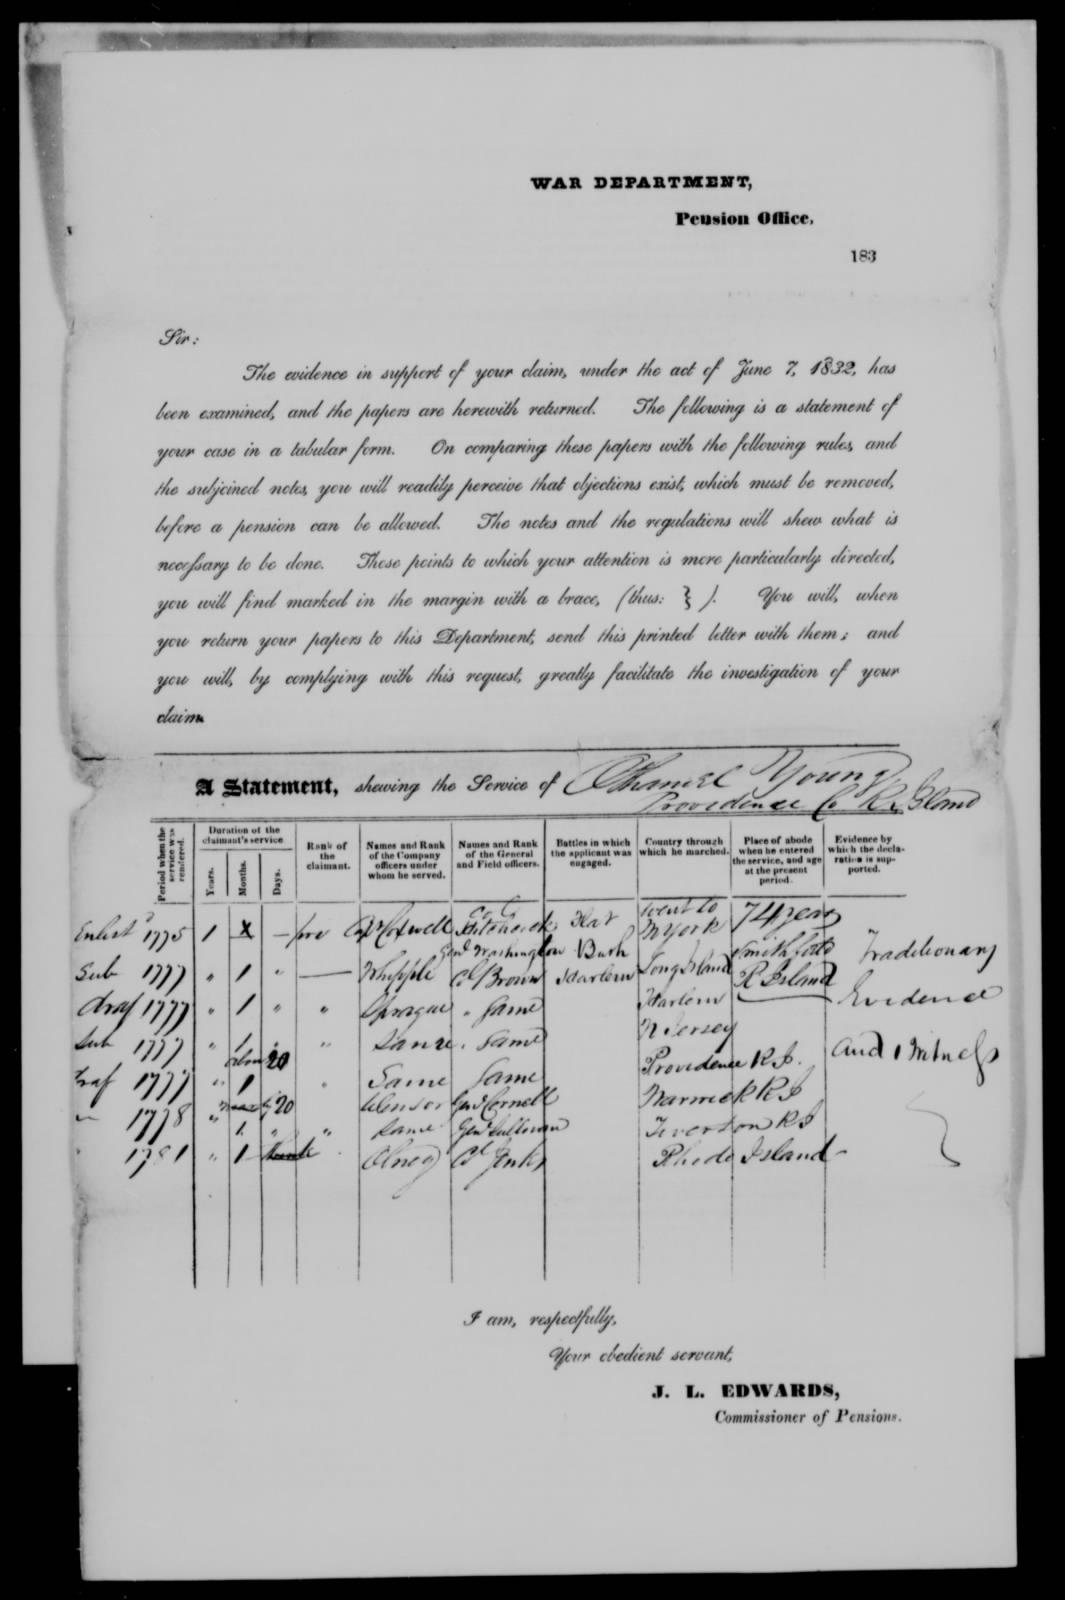 WAR DEPARTMENT,
Pension Office,
183
Sir:
The evidence in support of your claim, under the act of June 7, 1832, has
been examined, and the papers are herewith returned. The following is a statement of
your case in a tabular form. On comparing these papers with the following rules, and
the subjoined notes, you will readily perceive that objections exist, which must be removed,
before a pension can be allowed. The notes and the regulations will shew what is
necessary to be done. Those points to which your attention is more particularly directed,
you will find marked in the margin with a brace, (thus: } ). You will, when
you return your papers to this Department, send this printed letter with them; and
you will, by complying with this request, greatly facilitate the investigation of your
claim.
A Statement, shewing the Service of Othaniel Young
Providence Co R. Island
Period when the service was rendered.
Duration of the claimant's service
Years. Months. Days.
Rank of the claimant.
Names and Rank of the Company officers under whom he served.
Names and Rank of the General and Field officers.
Battles in which the applicant was engaged.
Country through which he marched.
Place of abode when he entered the service, and age at the present period.
Evidence by which the declaration is supported.
Enlist 1775 1 x — Col Hitchcock Flat went to N York 74 years
Genl Washington Bush Smithfield Traditionary
Sub 1777 " 1 " Whipple Col Brown Harlem Long Island R Island
1777 " 1 " " Sprague " Same Harlem Evidence
Sub 1777 " 1 " " Same . Same N Jersey
20 Providence R I. and 1 Witness
1777 " 1 " Same Same
1778 " 20 Genl Cornell Warwick R I
1. " " Same Genl Sullivan Tiverton R I
1781 " 1 Olney Col Jenks Rhode Island
I am, respectfully,
Your obedient servant,
J. L. EDWARDS,
Commissioner of Pensions.